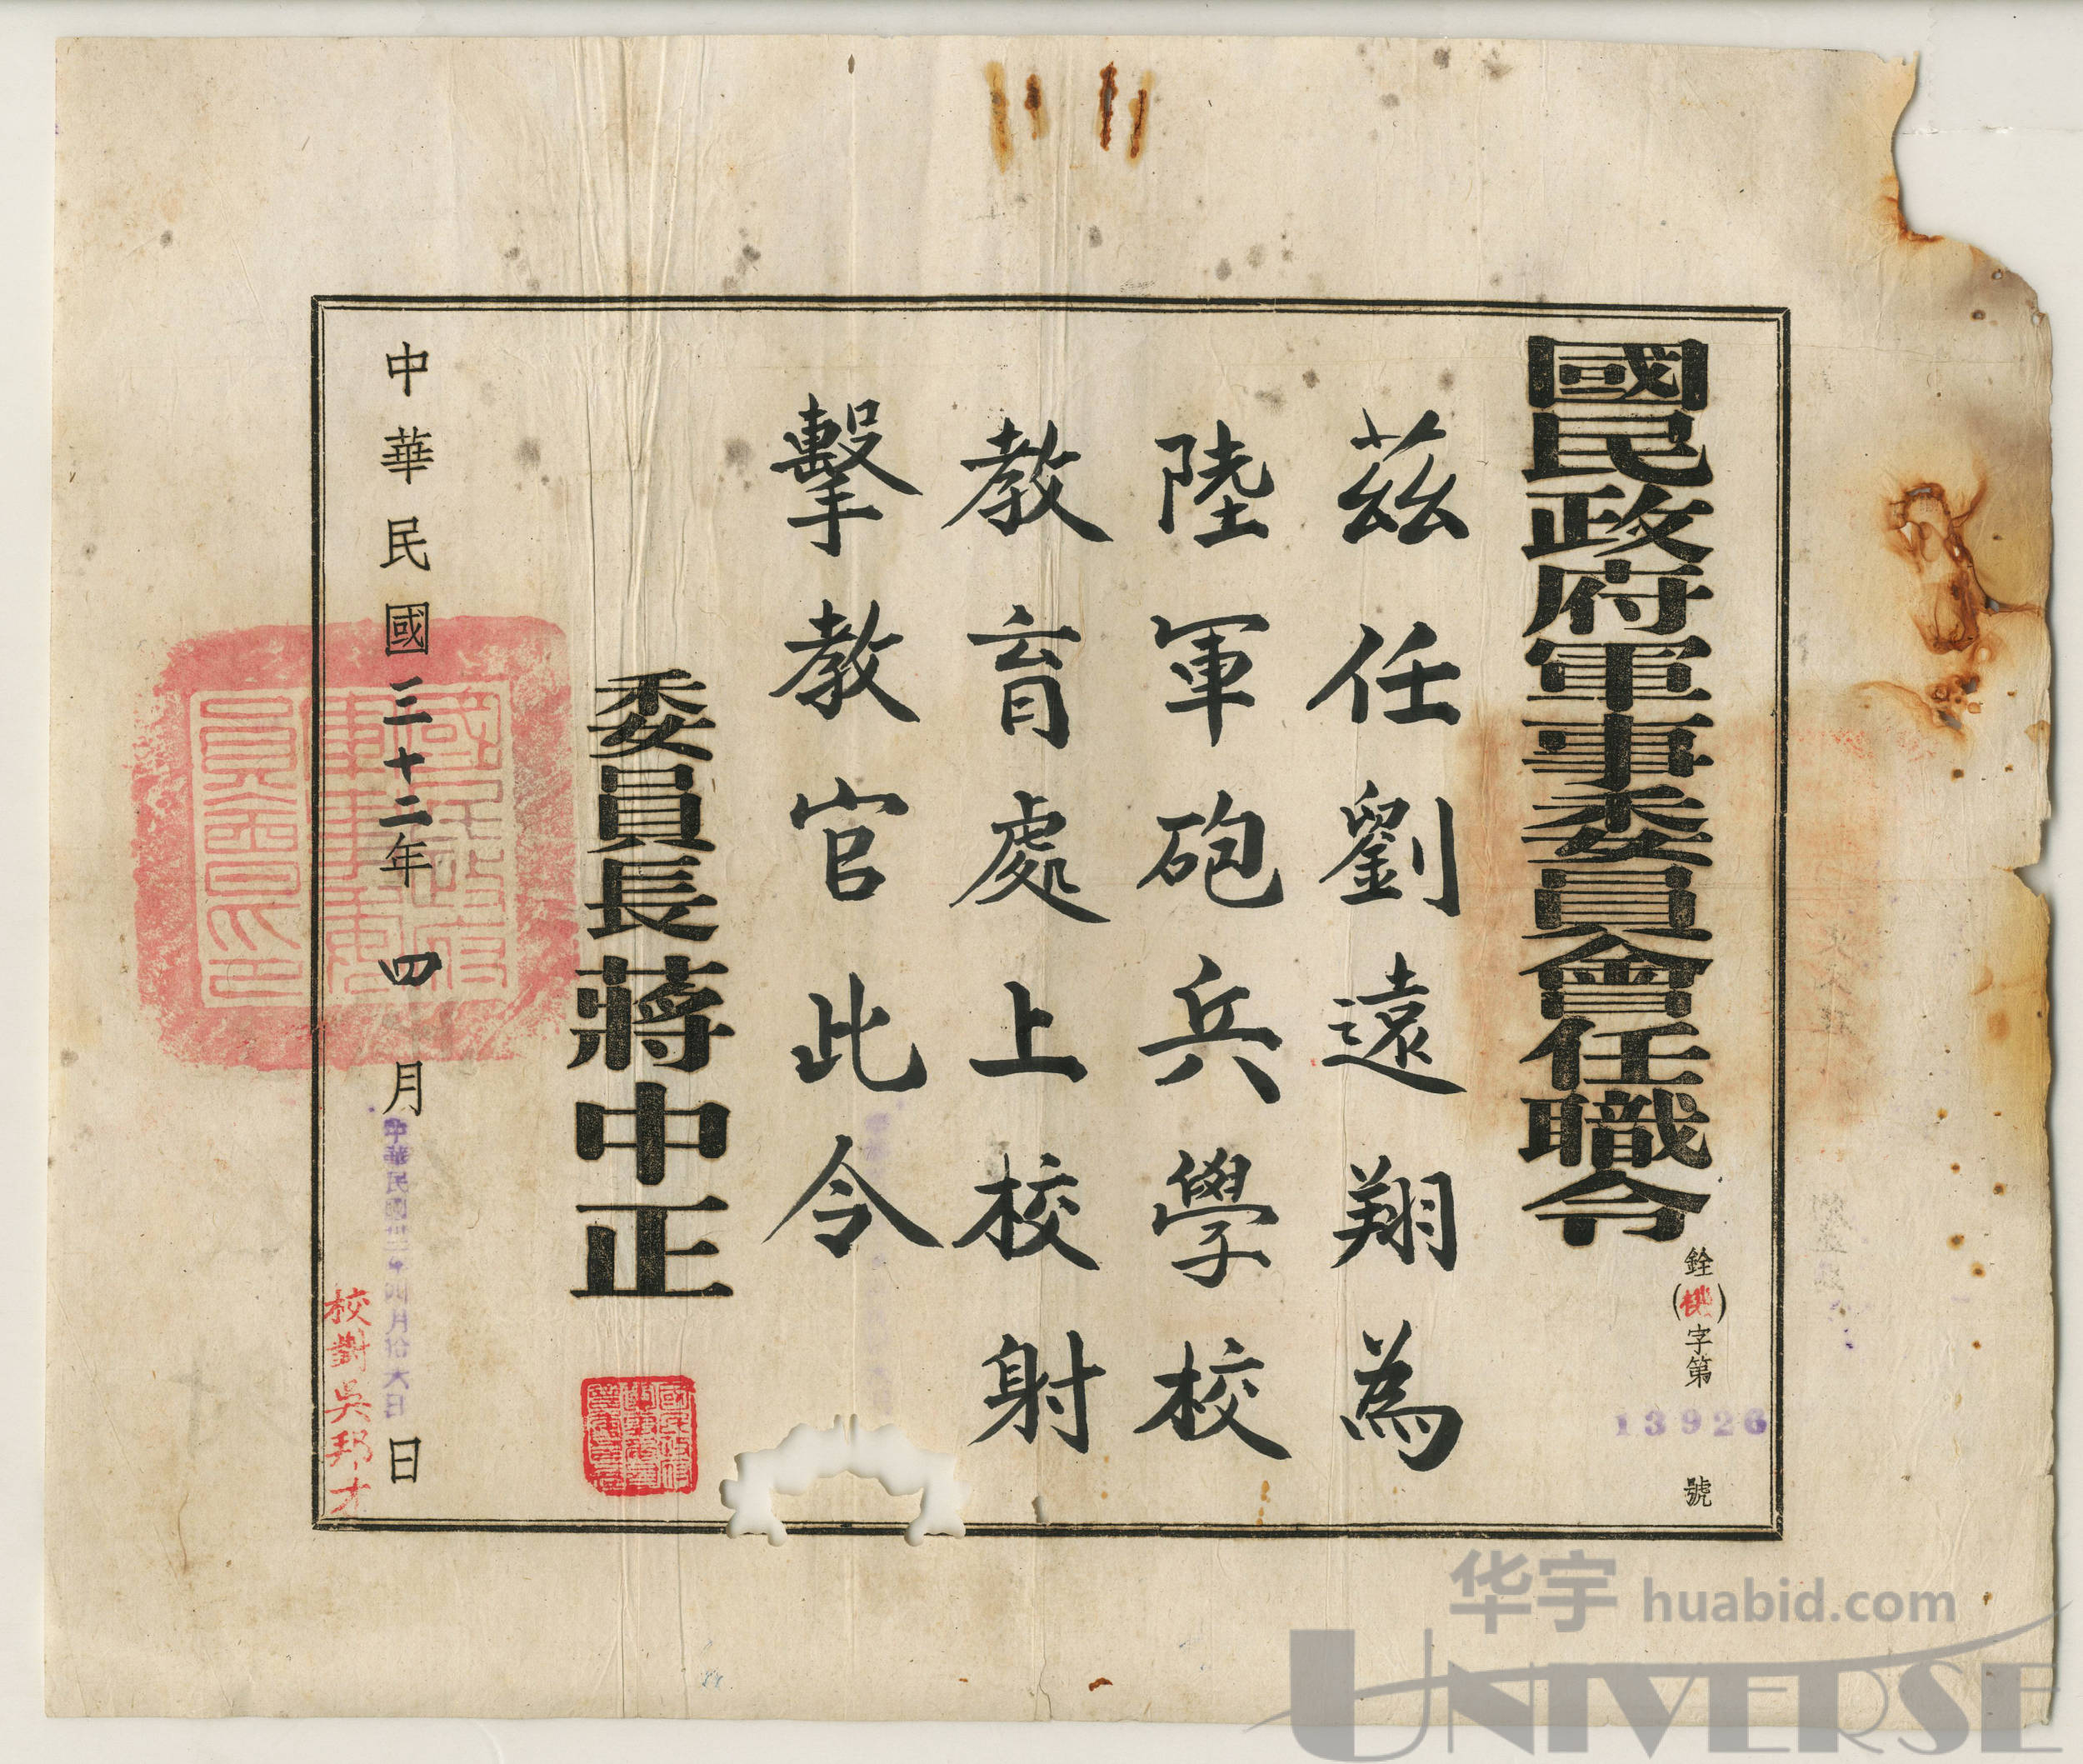 國民政府軍事委員會任職令
銓(機)字第13926號
茲任劉遠翔為
陸軍砲兵學校
教育處上校射
擊教官此令
委員長蔣中正
中華民國三十二年四月日
中華民國卅二年四月拾六日
校對吳邦才
華宇 huabid.com
UNIVERSE